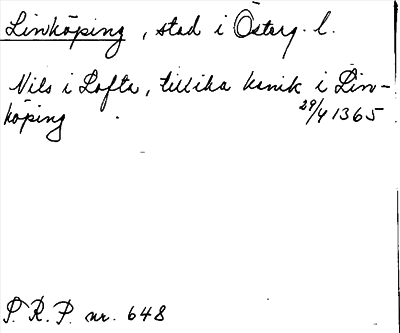 Linköping, stad i Österg. l.
Nils i Lofta, tillika kanik i Lin-
köping 29/4 1365
P. R. P. nr. 648